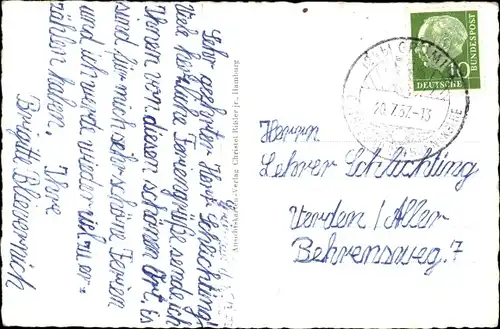 Sehr geehrter Herr Schichling!
Viele herzliche Feriengrüße sende ich
Ihnen von diesem schönen Ort. Es
sind für mich sehr schöne Ferien
und ich werde wieder viel zu er=
zählen haben. Ihre
Brigitte
Ansichtskarten-Verlag Christel Rösler jr., Hamburg
DEUTSCHE BUNDESPOST
10
20.7.57-13
Herrn
Lehrer Schlichling
Verden/Aller
Behrensweg.7